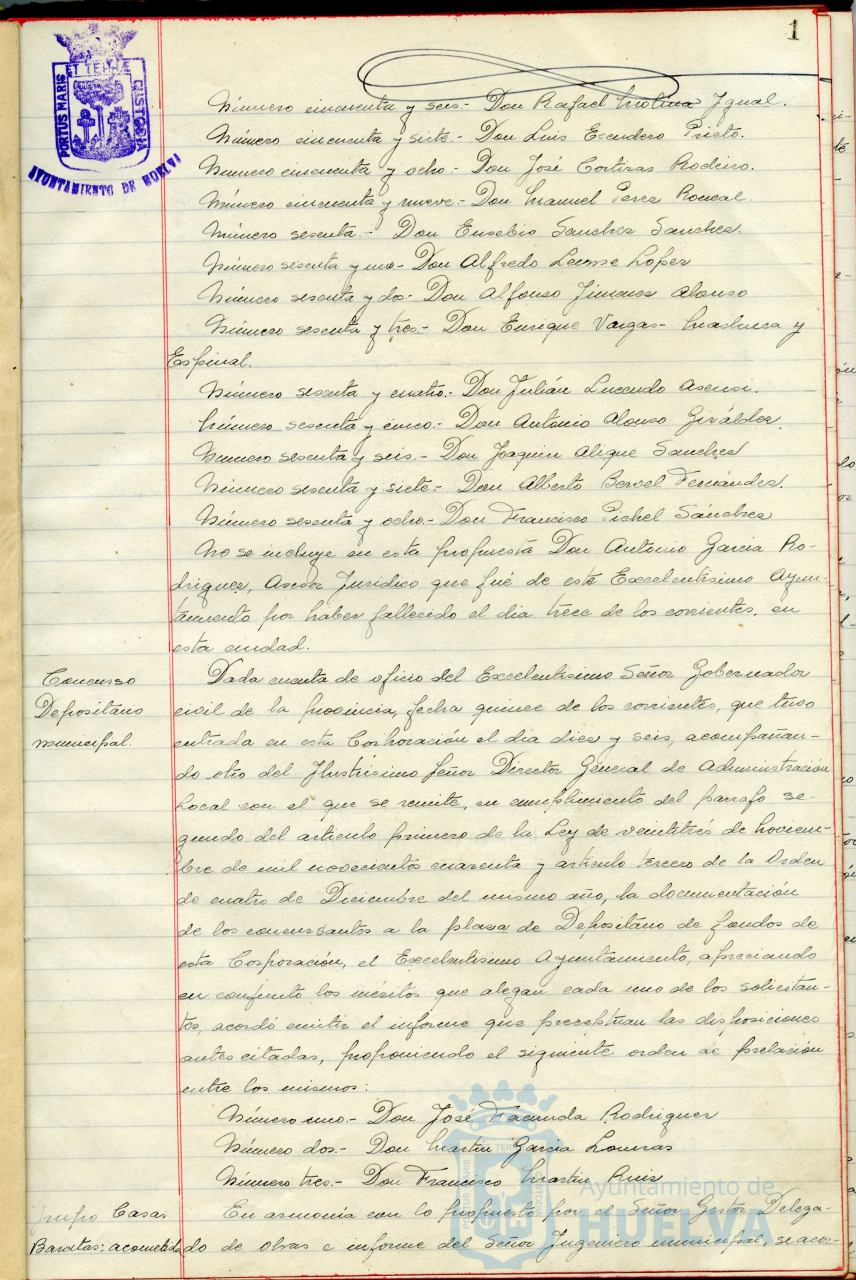 1
PORTUS MARIS ET TERRAE CUSTODIA
AYUNTAMIENTO DE HUELVA
Número cincuenta y seis.- Don Rafael Molina Igual.
Número cincuenta y siete.- Don Luis Escudero Prieto.
Numero cincuenta y ocho.- Don José Cortizas Rodeiro.
Número cincuenta y nueve.- Don Manuel Perez Roncal.
Número sesenta.- Don Eusebio Sanchez Sanchez.
Número sesenta y uno- Don Alfredo López
Número sesenta y dos- Don Alfonso Jimenez Alonso
Número sesenta y tres.- Don Enrique Vargas- Machuca y
Espinal.
Número sesenta y cuatro.- Don Julián Lucendo Asensi.
Número sesenta y cinco.- Don Antonio Alonso Giráldez.
Numero sesenta y seis.- Don Joaquin Alique Sanchez
Número sesenta y siete.- Don Alberto Fernández.
Número sesenta y ocho.- Don Francisco Pichel Sánchez
No se incluye en esta propuesta Don Antonio Garcia Ro-
driguez, Asesor Juridico que fué de este Excelentisimo Ayun-
tamiento por haber fallecido el dia trece de los corrientes, en
esta ciudad.
Concurso
Depositario
municipal.
Dada cuenta de oficio del Excelentisimo Señor Gobernador
civil de la provincia, fecha quince de los corrientes, que tuvo
entrada en esta Corporación el dia diez y seis, acompañan-
do otro del Ilustrisimo Señor Director General de Administración
Local con el que se remite, en cumplimiento del parrafo se-
gundo del articulo primero de la Ley de veintitrés de Noviem-
bre de mil novecientos cuarenta y articulo tercero de la Orden
de cuatro de Diciembre del mismo año, la documentación
de los concursantes a la plaza de Depositario de fondos de
esta Corporación, el Excelentisimo Ayuntamiento, apreciando
en conjunto los méritos que alegan cada uno de los solicitan-
tes, acordó emitir el informe que preceptúan las disposiciones
antes citadas, proponiendo el siguiente orden de prelación
entre los mismos:
Número uno.- Don José Facunda Rodriguez
Número dos.- Don Martin Garcia
Número tres.- Don Francisco Martin Ruiz
Grupo Casas
Baratas: acometida
En armonía con lo propuesto por el Señor Gestor Delega-
do de obras e informe del Señor Ingeniero municipal, se acor-
Ayuntamiento de
HUELVA